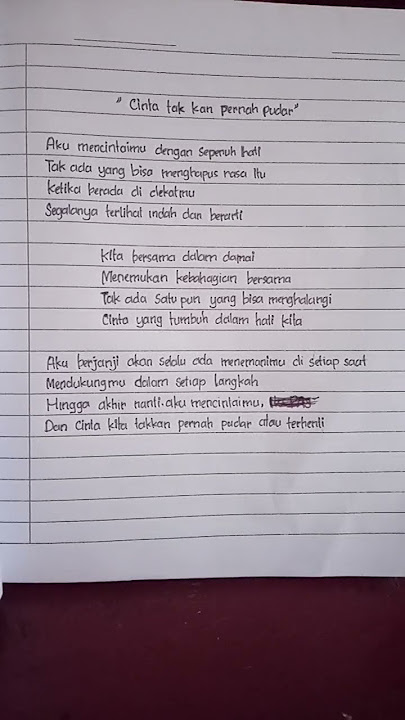 "Cinta tak kan pernah pudar"
Aku mencintaimu dengan sepenuh hati
Tak ada yang bisa menghapus rasa itu
Ketika berada di dekatmu
Segalanya terlihat indah dan berarti
Kita bersama dalam damai
Menemukan kebahagian bersama
Tak ada satu pun yang bisa menghalangi
Cinta yang tumbuh dalam hati kita
Aku berjanji akan selalu ada menemanimu di setiap saat
Mendukungmu dalam setiap langkah
Hingga akhir nanti. aku mencintaimu,
Dan Cinta kita takkan pernah pudar atau terhenti